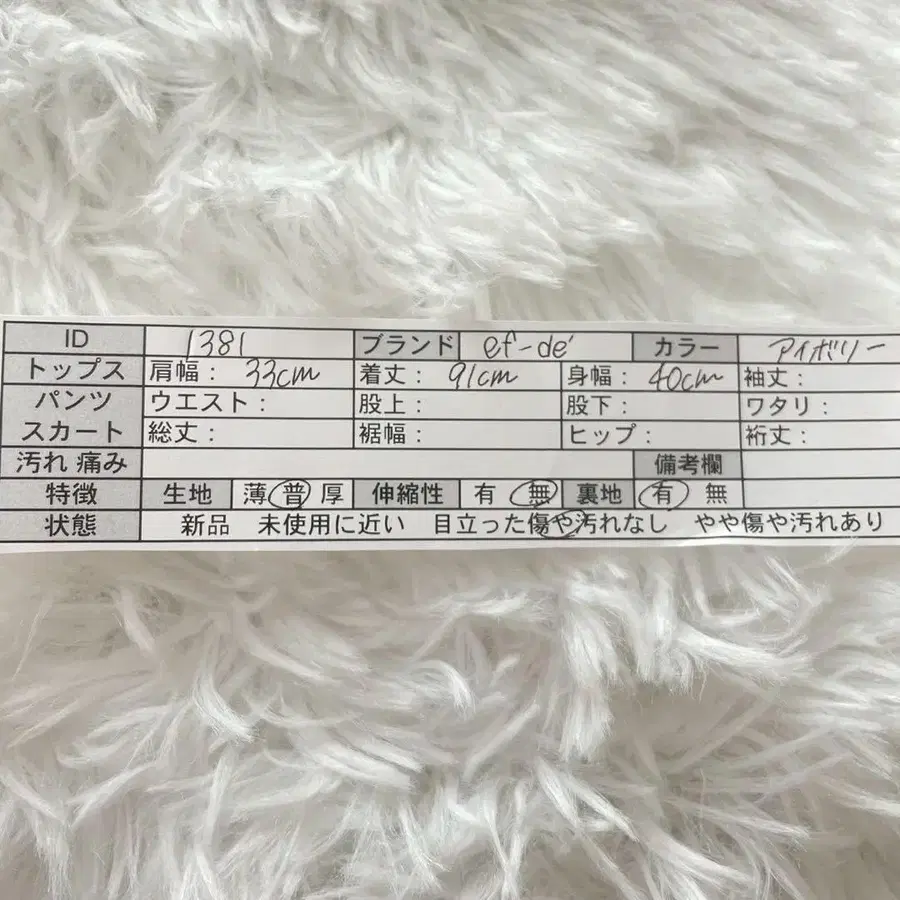 ID 1381 ブランド ef-de' カラー アイボリー
トップス 肩幅： 33cm 着丈： 91cm 身幅： 40cm 袖丈：
パンツ ウエスト： 股上： 股下： ワタリ：
スカート 総丈： 裾幅： ヒップ： 裄丈：
汚れ 痛み 備考欄
特徴 生地 薄 普 厚 伸縮性 有 無 裏地 有 無
状態 新品 未使用に近い 目立った傷や汚れなし やや傷や汚れあり